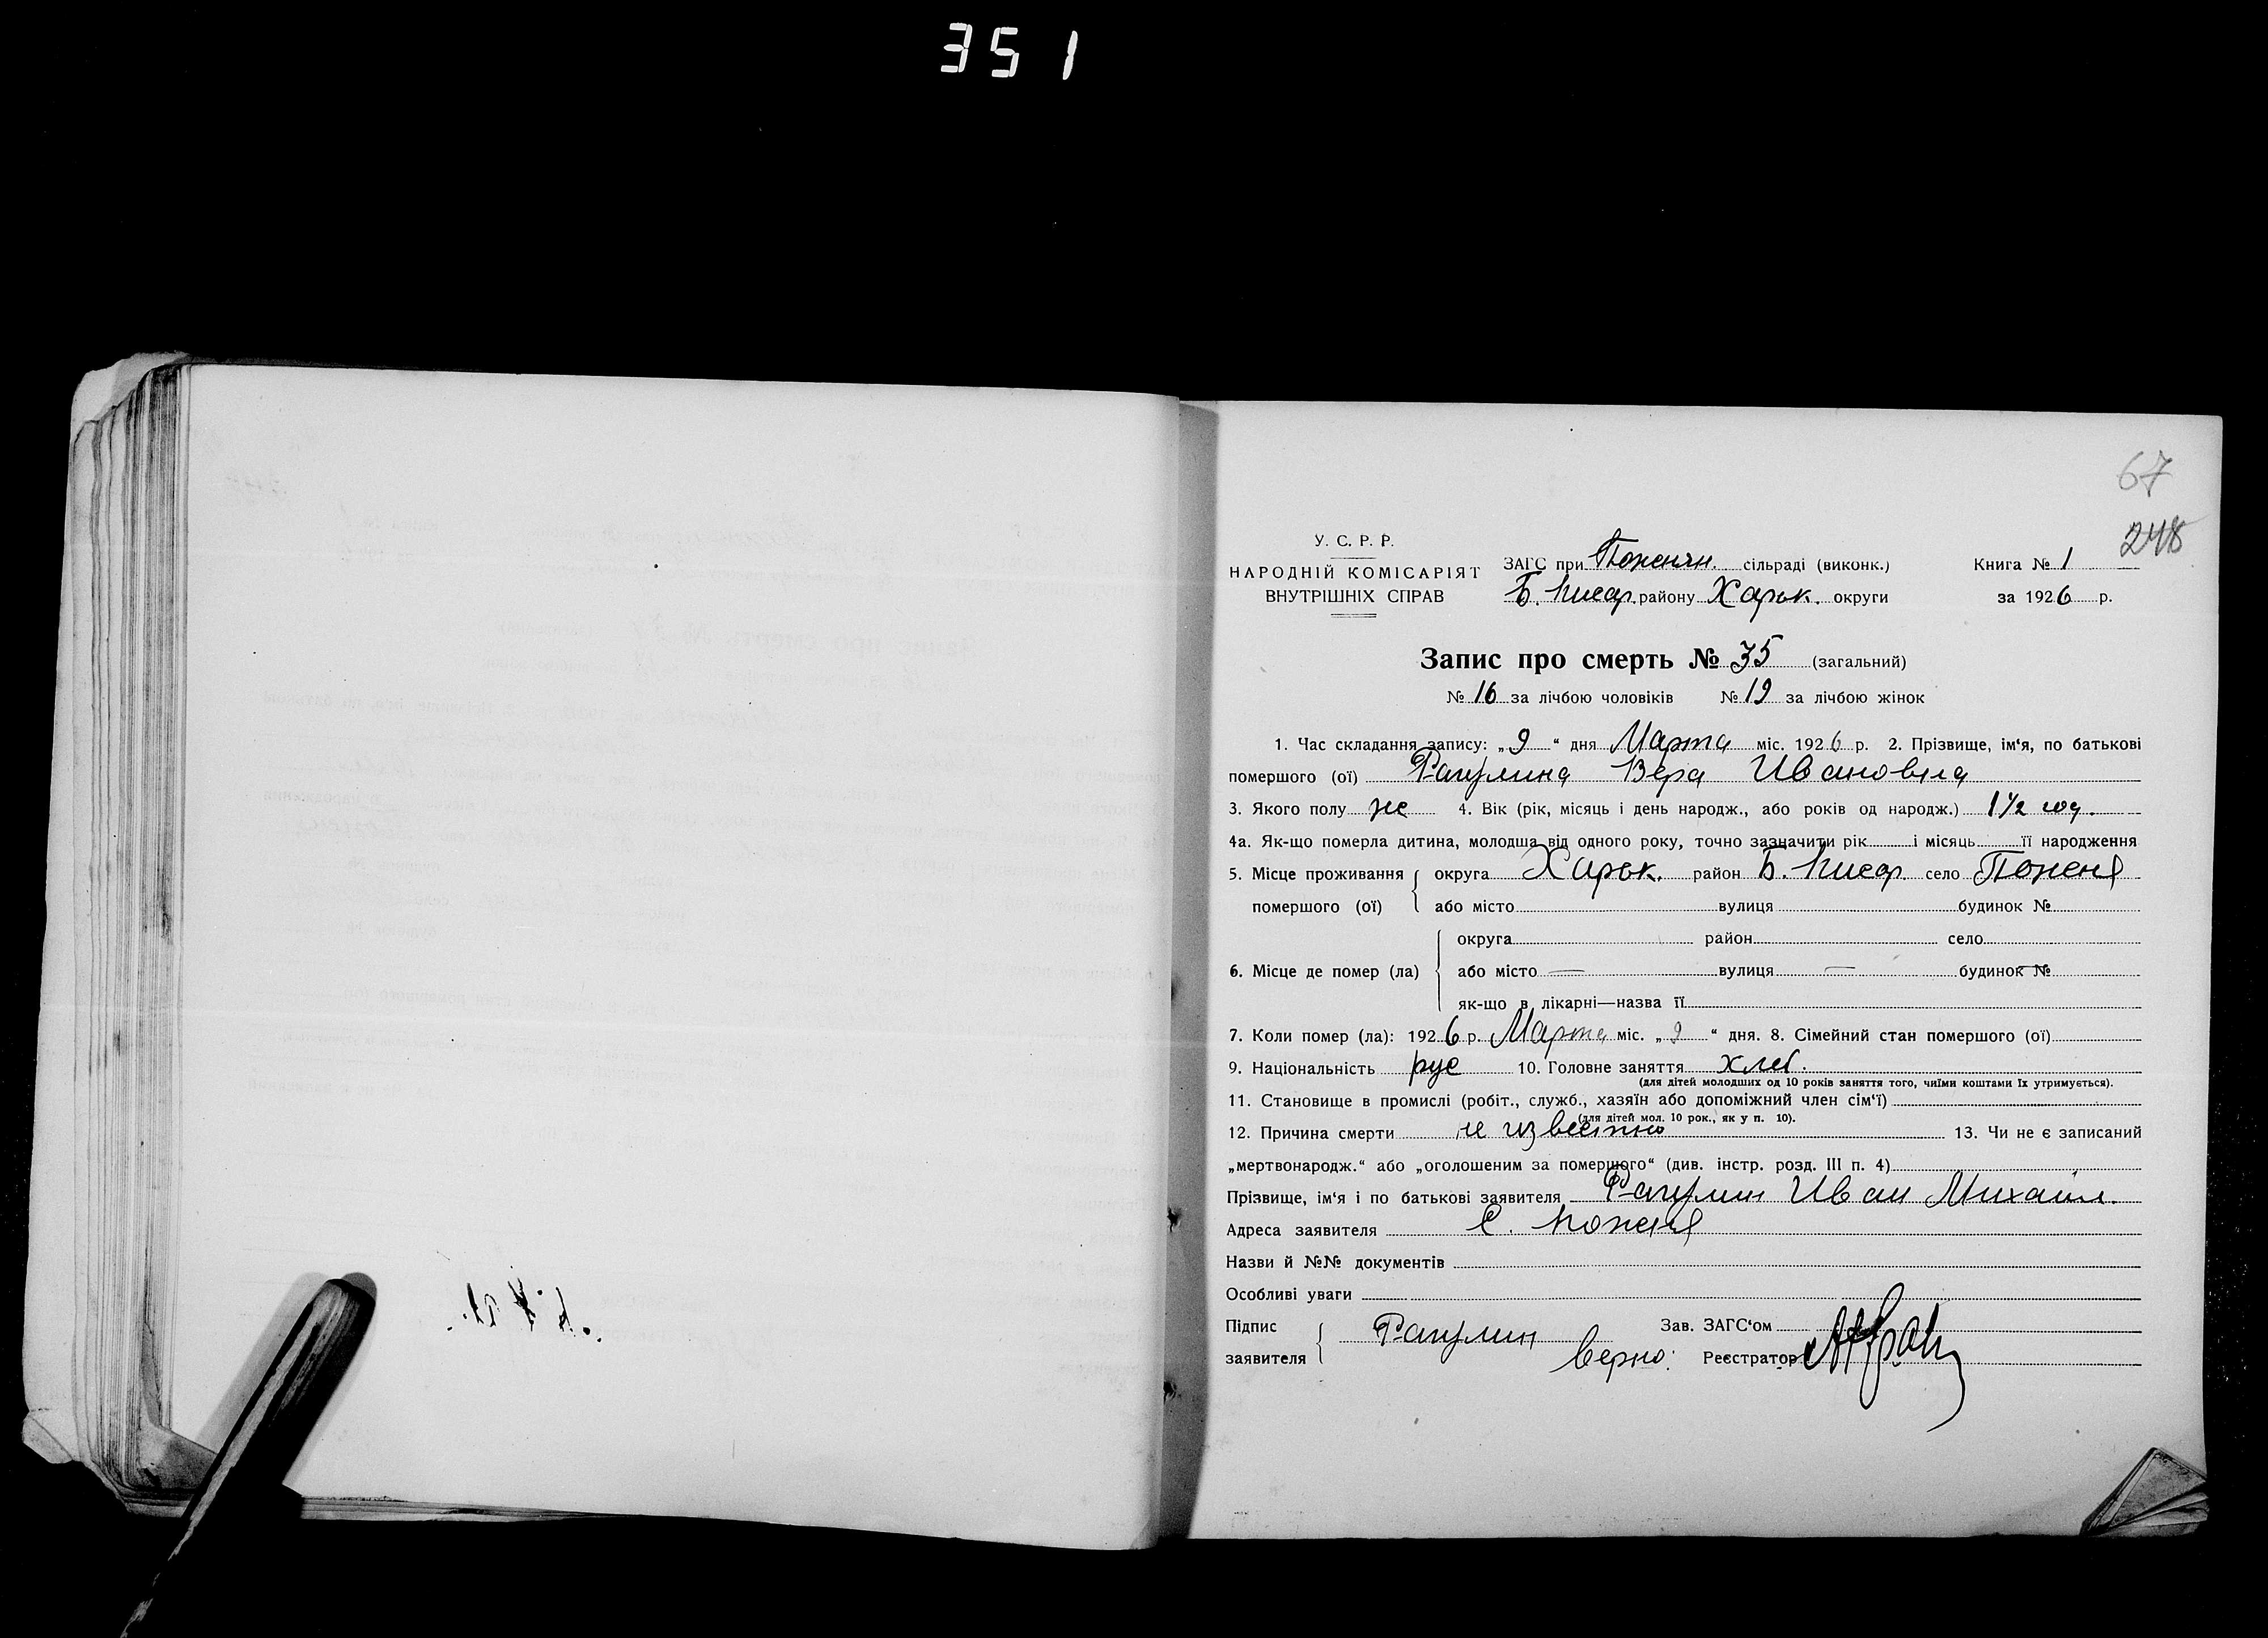 351
67
248
У. С. Р. Р.
НАРОДНІЙ КОМІСАРІЯТ
ВНУТРІШНІХ СПРАВ
ЗАГС при Поженян. сільраді (виконк.)
Б. Писар. району Харьк. округи
Книга № 1
за 1926 р.
Запис про смерть № 35 (загальний)
№ 16 за лічбою чоловіків № 19 за лічбою жінок
1. Час складання запису: „9“ дня Марта міс. 1926 р. 2. Прізвище, ім‘я, по батькові
помершого (ої) Рагулина Вера Ивановна
3. Якого полу же 4. Вік (рік, місяць і день народж., або років од народж.) 1 1/2 год.
4а. Як-що померла дитина, молодша від одного року, точно зазначити рік і місяць її народження
5. Місце проживання помершого (ої) округа Харьк. район Б. Писар. село Поженя
або місто вулиця будинок №
6. Місце де помер (ла) округа район село
або місто — вулиця — будинок №
як-що в лікарні—назва її
7. Коли помер (ла): 1926 р. Марта міс. „9“ дня. 8. Сімейний стан помершого (ої)
9. Національність рус 10. Головне заняття хлеб.
(для дітей молодших од 10 років заняття того, чиїми коштами їх утримується).
11. Становище в промислі (робіт., служб., хазяїн або допоміжний член сім‘ї)
(для дітей мол. 10 рок., як у п. 10).
12. Причина смерти не извесипно 13. Чи не є записаний
„мертвонародж.“ або „оголошеним за помершого“ (див. інстр. розд. III п. 4)
Прізвище, ім‘я і по батькові заявителя Рагулин Иван Михаил.
Адреса заявителя С. Поженя
Назви й №№ документів
Особливі уваги
Підпис заявителя Рагулин
Зав. ЗАГС‘ом
Верно: Реєстратор